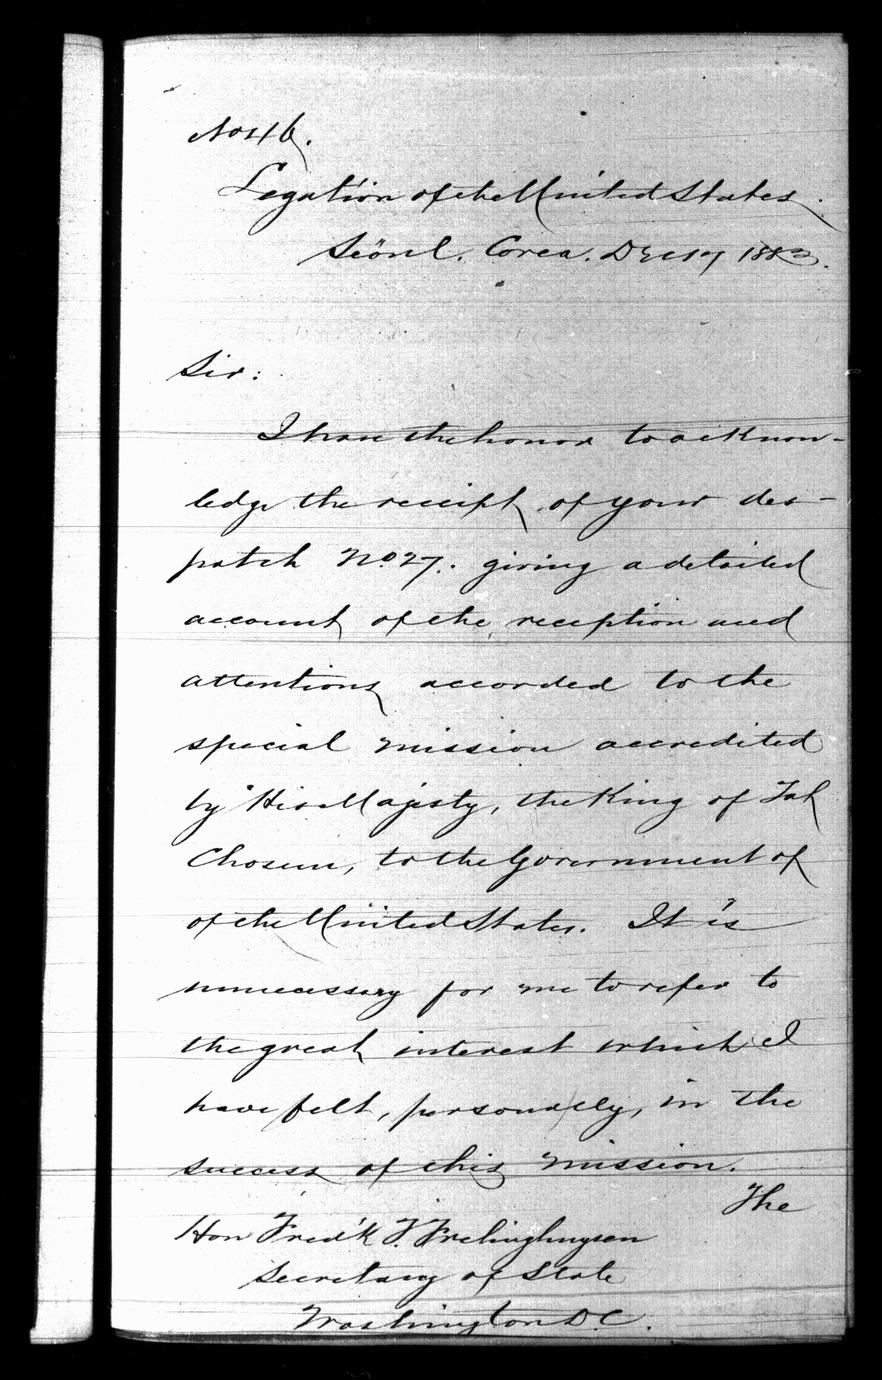 No 46.
Legation of the United States.
Seöul. Corea. Dec 17 1883.
Sir:
I have the honor to acknow-
ledge the receipt of your des-
patch No 27. giving a detailed
account of the reception and
attentions accorded to the
special mission accredited
by His Majesty, the King of Tah
Chosun, to the Government of
of the United States. It is
unnecessary for me to refer to
the great interest which I
have felt, personally, in the
success of this mission.
The
Hon Fred'k T. Frelinghuysen
Secretary of State
Washington D.C.